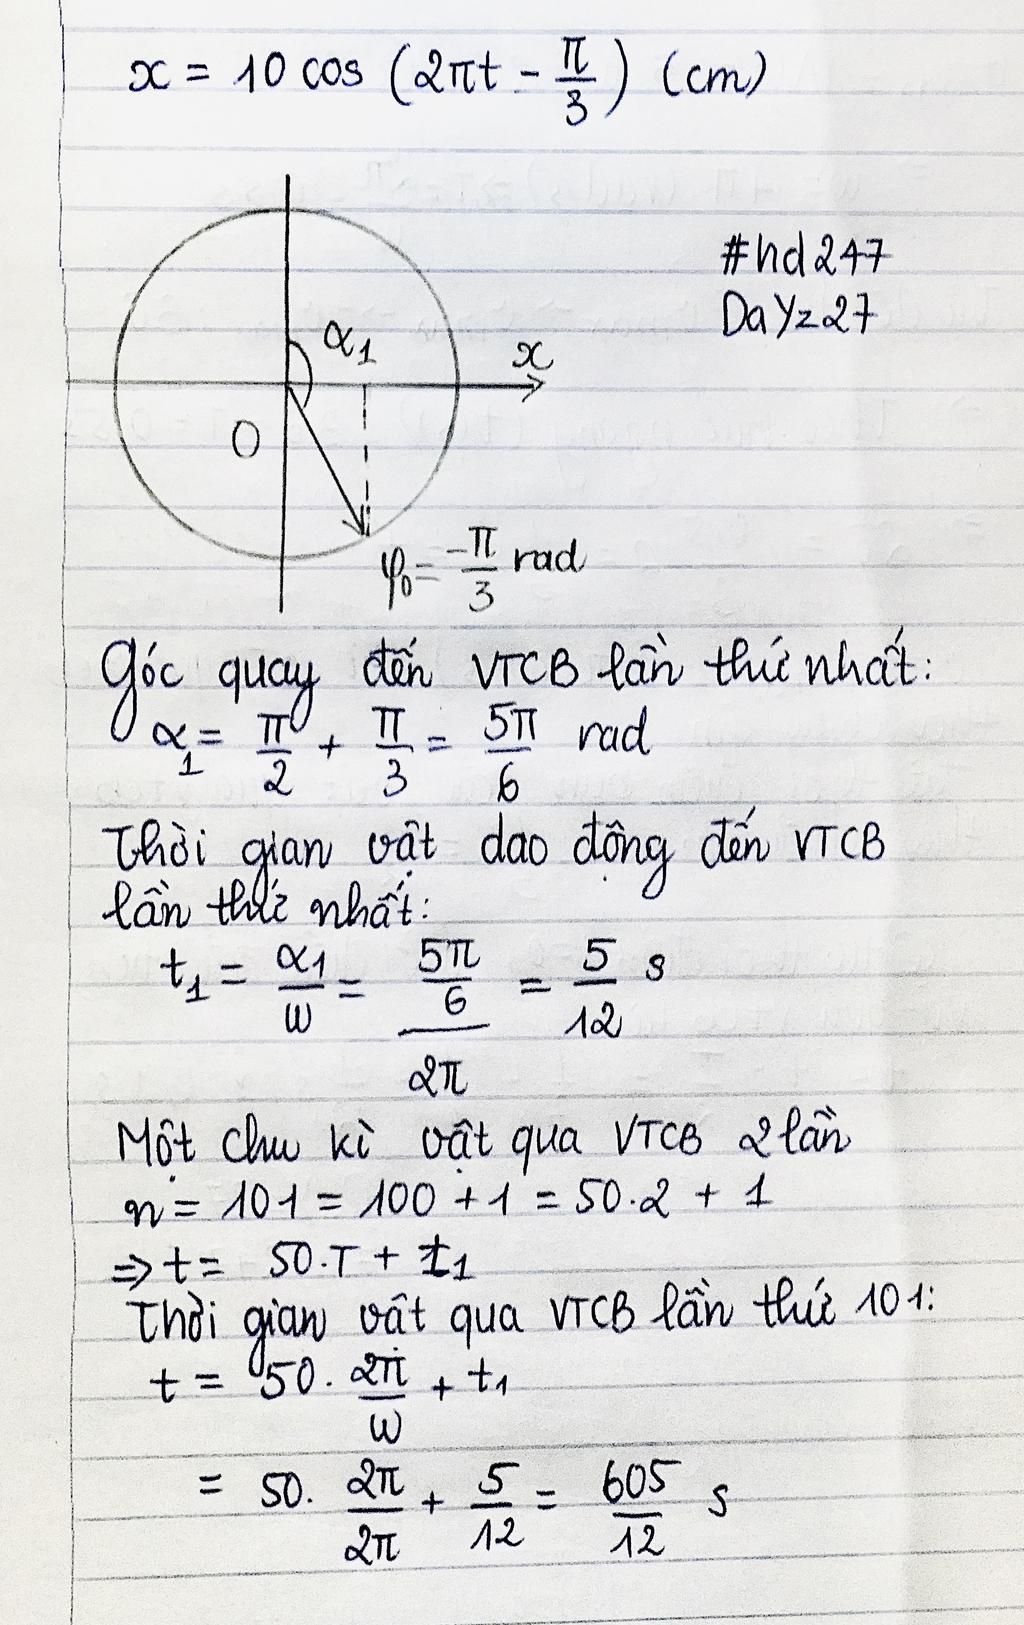 x = 10 cos (2πt - π/3) (cm)
#hd247
DaYz27
α₁
x
O
φ₀ = -π/3 rad
Góc quay đến VTCB lần thứ nhất:
α₁ = π/2 + π/3 = 5π/6 rad
Thời gian vật dao động đến VTCB
lần thứ nhất:
t₁ = α₁/ω = (5π/6)/2π = 5/12 s
Một chu kì vật qua VTCB 2 lần
n = 101 = 100 + 1 = 50.2 + 1
⇒ t = 50.T + t₁
Thời gian vật qua VTCB lần thứ 101:
t = 50. 2π/ω + t₁
= 50. 2π/2π + 5/12 = 605/12 s